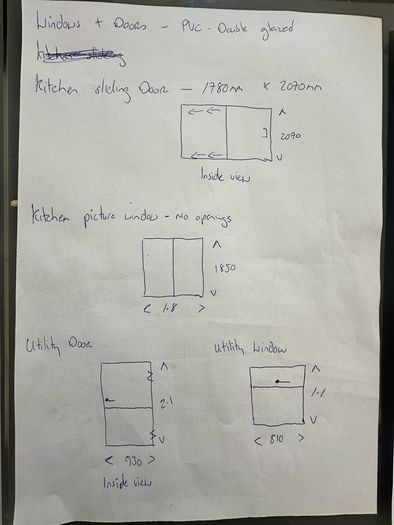 Windows + Doors - PVC - Double glazed
Kitchen sliding
Kitchen sliding Door - 1780mm x 2070mm
2070
Inside view
Kitchen picture window - No openings
1850
1.8
Utility Door
Utility Window
2.1
1.1
930
810
Inside view